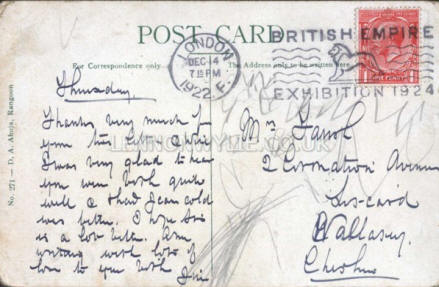 POST CARD
For Correspondence only
The Address only to be written here
LONDON
DEC 14
7 15 PM
1922
F.
BRITISH EMPIRE
EXHIBITION 1924
No. 271 — D. A. Ahuja, Rangoon
LENNONWYLIE.CO.UK
Thursday
Thanks very much for
your
I was very glad to hear
you were both quite
well & that Jean cold
was better. I hope
is a lot better. Am
writing with lots of
love to you both
Mrs
2 Coronation Avenue
Wallasey
Cheshire